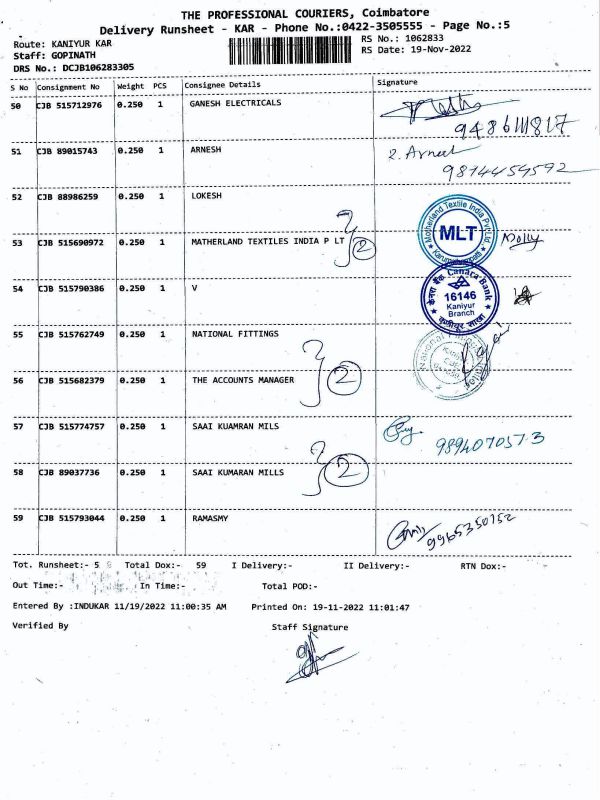 THE PROFESSIONAL COURIERS, Coimbatore
Delivery Runsheet - KAR - Phone No.:0422-3505555 - Page No.:5
Route: KANIYUR KAR
RS No.: 1062833
Staff: GOPINATH
RS Date: 19-Nov-2022
DRS No.: DCJB106283305
S No Consignment No Weight PCS Consignee Details Signature
50 CJB 515712976 0.250 1 GANESH ELECTRICALS
9486111817
51 CJB 89015743 0.250 1 ARNESH 2. Arneet
9874454592
52 CJB 88986259 0.250 1 LOKESH
Motherland Textile India Pvt Ltd
MLT
53 CJB 515690972 0.250 1 MATHERLAND TEXTILES INDIA P LT 2
54 CJB 515790386 0.250 1 V
केनरा बैंक Canara Bank
16146
Kaniyur
Branch
कणीयूर शाखा
55 CJB 515762749 0.250 1 NATIONAL FITTINGS
National
56 CJB 515682379 0.250 1 THE ACCOUNTS MANAGER 2
57 CJB 515774757 0.250 1 SAAI KUAMRAN MILS
9894070573
58 CJB 89037736 0.250 1 SAAI KUMARAN MILLS 2
59 CJB 515793044 0.250 1 RAMASMY
9965350152
Tot. Runsheet:- 5 Total Dox:- 59 I Delivery:- II Delivery:- RTN Dox:-
Out Time:- In Time:- Total POD:-
Entered By :INDUKAR 11/19/2022 11:00:35 AM Printed On: 19-11-2022 11:01:47
Verified By Staff Signature